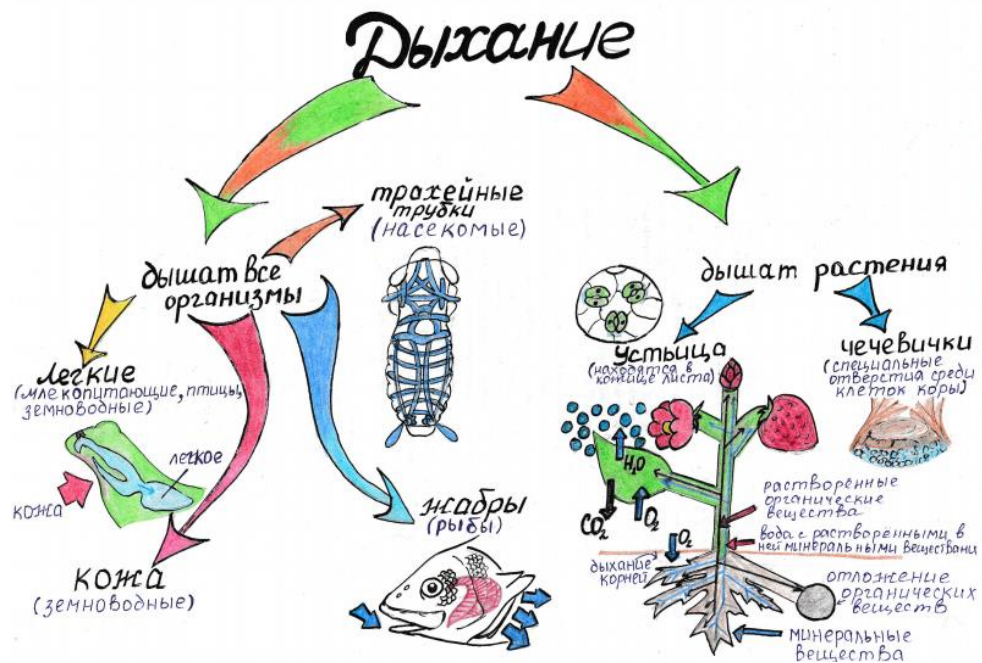 Дыхание
трахейные
трубки
(насекомые)
дышат все
организмы
Легкие
(млекопитающие, птицы,
земноводные)
легкое
кожа
кожа
(земноводные)
жабры
(рыбы)
дышат растения
Устьица
(находятся в
кожице листа)
чечевички
(специальные
отверстия среди
клеток коры)
H₂O
CO₂
O₂
O₂
дыхание
корней
растворённые
органические
вещества
вода с растворёнными в
ней минеральными веществами
отложение
органических
веществ
минеральные
вещества